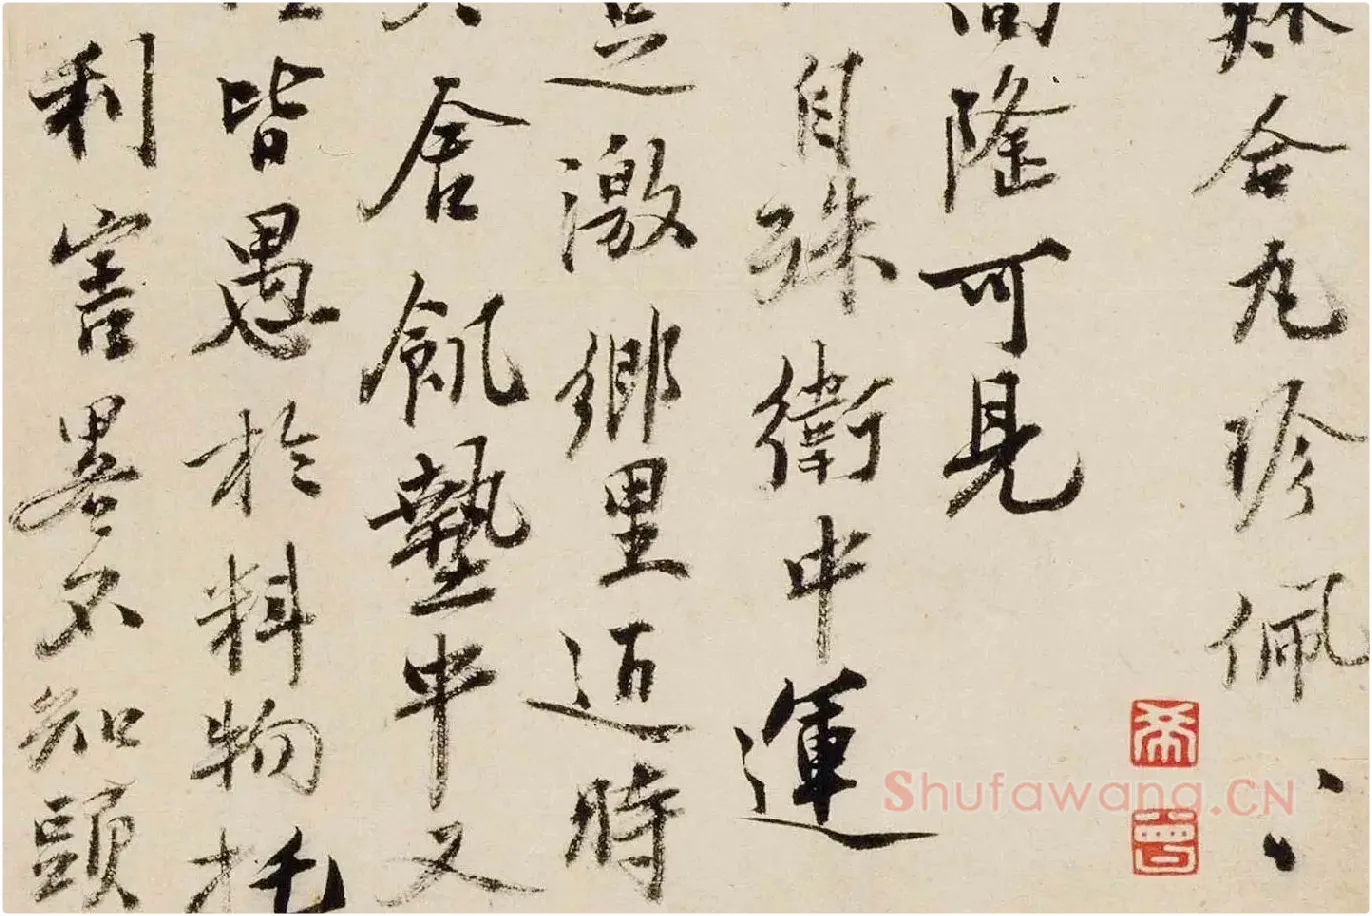 合丸珍佩、、
隆可見
自殊衛中運
激鄉里迺時
舍飢墊中又
皆愚於料物托
利害畧不知頭
Shufawang.CN